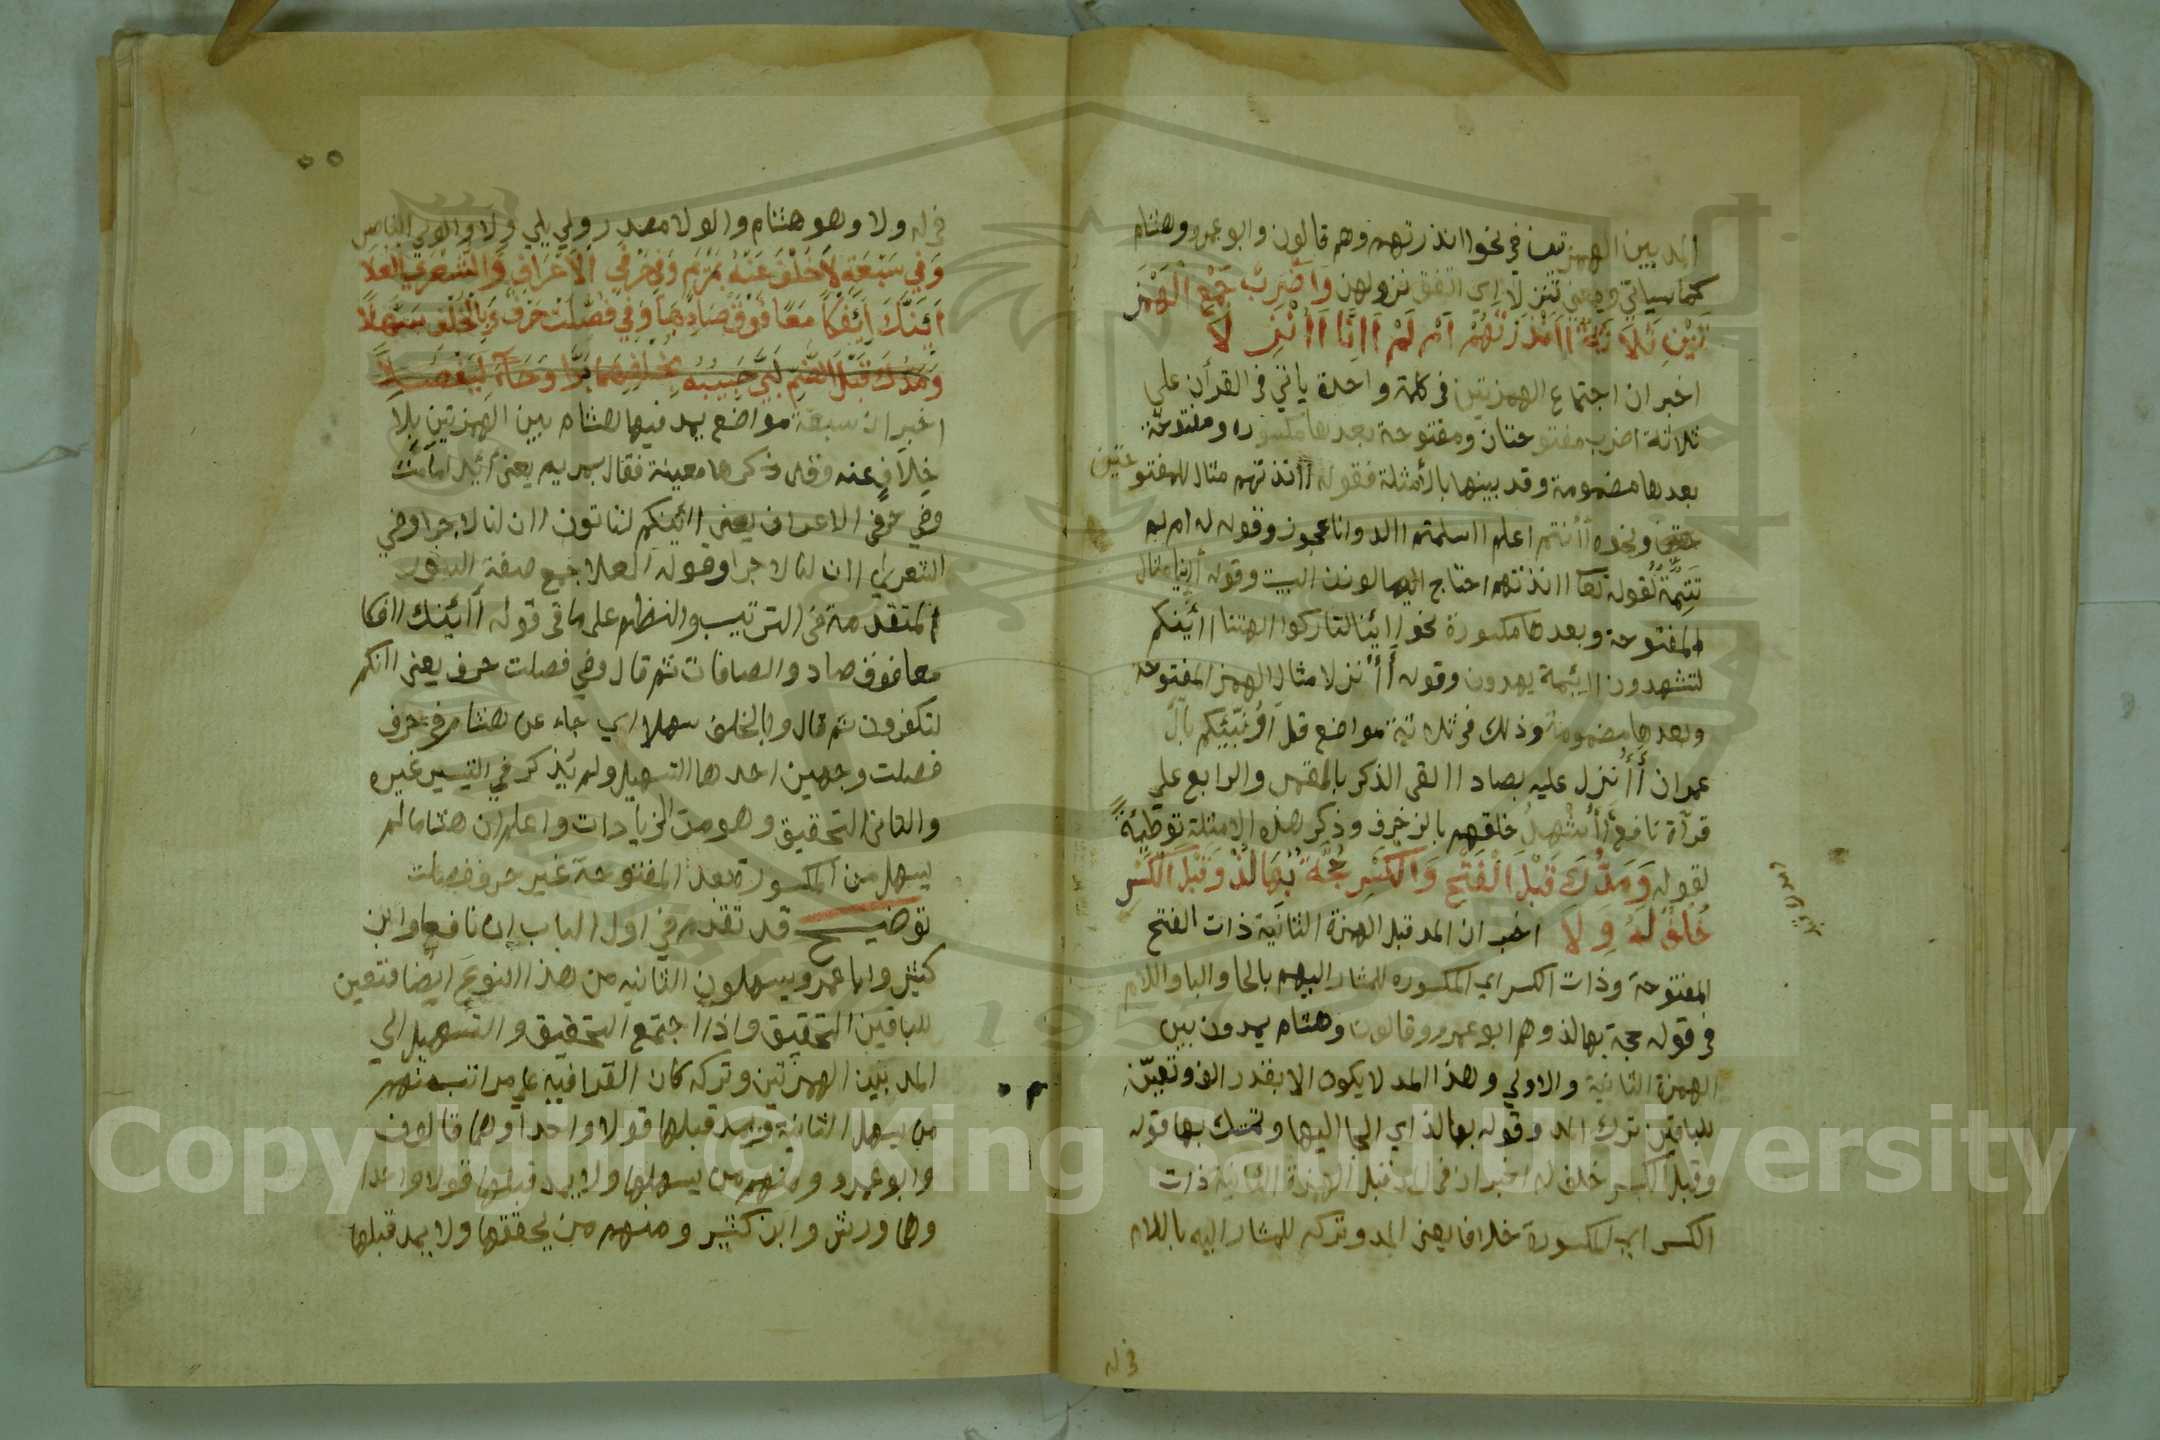 المد بين الهمزتين في نحو اانذرتهم وهم قالون وابو عمرو وهشام
كما سياتي ومعني تنزلا اي اتفق نزولهن وَاَضْرُبُ جَمْعِ الْهَمْزَ
تَيْنِ ثَلَاثَةٌ ااَنْذَرْتَهُمْ اَمْ لَمْ اَإِنَّا اَاُنْزِ لَا
اخبر ان اجتماع الهمزتين في كلمة واحدة ياتي في القرآن علي
ثلاثة اضرب مفتوحتان ومفتوحة بعدها مكسوره ومفتوحة
بعدها مضمومة وقد بينها بالأمثلة فقوله اانذرتهم مثال للمفتو
حتين
ونحوه أأنتم اعلم ااسلمتم االد وانا عجوز وقوله ام لم
تَتِمَّةٌ لقوله تعا اانذرتهم احتاج اليها لوزن البيت وقوله أإنا مثال
المفتوحة وبعدها مكسورة نحو اإئنا لتاركوا الهتنا اأئنكم
لتشهدون اأئمة يهدون وقوله أأنزلا مثال الهمز المفتوحة
وبعدها مضمومة وذلك في ثلاثة مواضع قل اؤنبئكم بآل
عمران أأنزل عليه بصاد االقى الذكر بالقمر والرابع علي
قرآة نافع أأشهدوا خلقهم بالزخرف وذكر هذه الامثلة توطئة
لقوله وَمَدُّكَ قَبْلَ الْفَتْحِ وَالْكَسْرِ حُجَّةٌ بُهَا لُذْ وَقَبْلَ الْكَسْرِ
خُلْفٌ لَهُ وِ لَا اخبر ان المد قبل الهمزة الثانية ذات الفتح
المفتوحة وذات الكسر اي المكسوره للمشار اليهم بالحا والبا واللام
في قوله حجة بها لذ وهم ابو عمرو وقالون وهشام يمدون بين
الهمزة الثانية والاولي وهذا المد لا يكون الا بقدر الف وتعين
للباقين ترك المد وقوله بها لذ اي الجا اليها وتمسك بها قوله
وقبل الكسر خلف له اخبر ان في المد قبل الهمزة الثانية ذات
الكسر اي المكسورة خلافا يعني المد وتركه للمشار اليه باللام
في له
في له ولا وهو هشام والولا مصدر ولي يلي ولآ والولي الناصر
وَفِي سَبْعَةٍ لَاخُلْفَ عَنْهُ بِمَرْيَمٍ وَفِي حَرْفَيِ الْاَعْرَافِ وَالشُّعَرَا الْعُلَا
اَئِنَّكَ اَئِفْكًا مَعًا فَوْقَ صَادِهَا وَفِي فُصِّلَتْ حَرْفٌ وَبِالْخُلْفِ سَهَّلَا
وَمَدُّكَ قَبْلَ الضَّمِ لَبَّى حَبِيبُهُ بِخُلْفِهِمَا بَرًّا وَجَاءَ لِيَفْصِلَا
اخبر ان سبعة مواضع يمد فيها هشام بين الهمزتين بلا
خِلَافٍ عنه وقد ذكرها معينة فقال بمريم يعني أئذا مامت
وفي حرفي الاعراف يعني اائنكم لتاتون اان لنا لاجرا وفي
الشعراي اان لنا لاجرا وقوله العلا جمع صفة السور
المتقدمة في الترتيب والنظم علي ما في قوله أائنك اافكا
معا فوق صاد والصافات ثم قال وفي فصلت حرف يعني اانكم
لتكفرون ثم قال وبالخلف سهلا اي جاء عن هشام في حرف
فصلت وجهين احدها التسهيل ولم يُذكر في التيسير غيره
والثاني التحقيق وهو من الزيادات واعلم ان هشاما لم
يسهل من المكسورة بعد المفتوحة غير حرف فصلت
توضيح قد تقدم في اول الباب ان نافعا وابن
كثير وابا عمرو يسهلون الثانيه من هذا النوع ايضا فتعين
للباقين التحقيق واذا اجتمع التحقيق والتسهيل الي
المد بين الهمزتين وتركه كان القرا فيه علي مراتب منهم
من يسهل الثانية ويمد قبلها قولا واحدا وهما قالون
وابو عمرو ومنهم من يسهلها ولا يمد قبلها قولا واحدا
وهما ورش وابن كثير ومنهم من يحققها ولا يمد قبلها
Copyright © King Saud University
1957